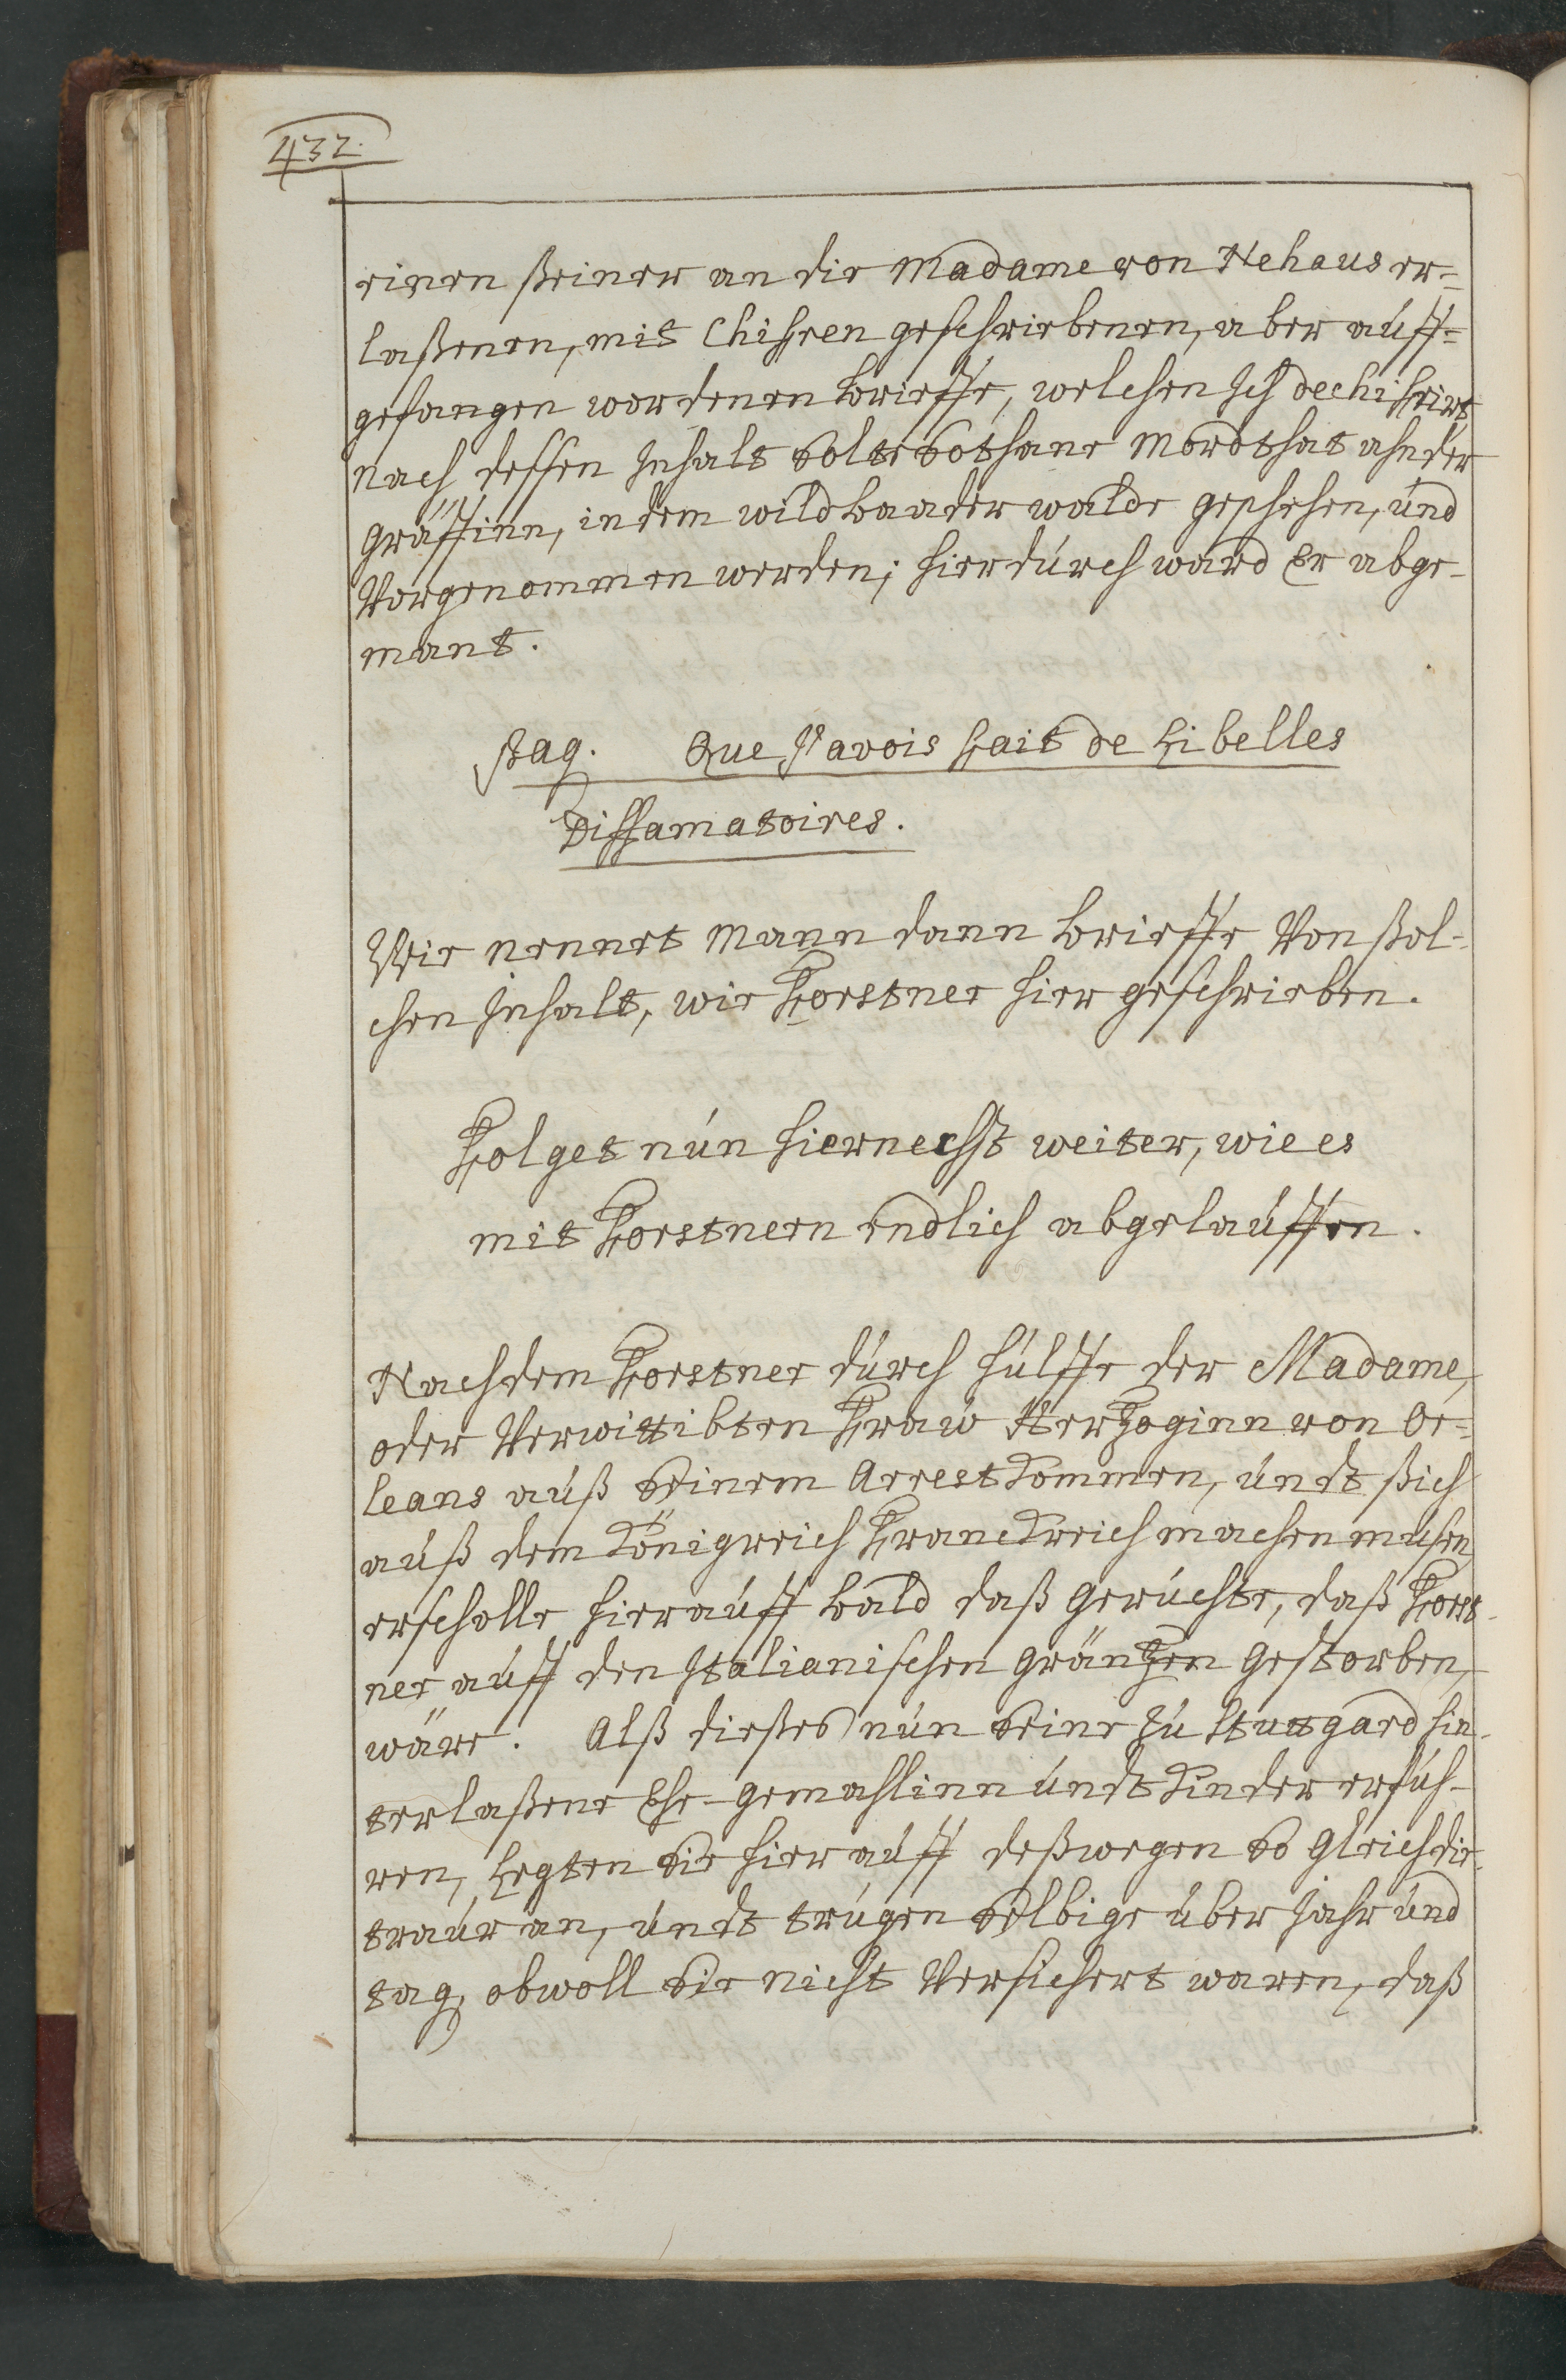 432.
einen seiner an die Madame von Nehaus er-
laßenen, mit Chifren geschriebenen, aber auff-
gefangen wordenen brieffe, welchen Ich dechifrirt
nach dessen Inhalt solte sothane Mordthat ahn der
Gräffinn, in dem wildbaader walde geschehen, und
Vorgenommen werden; hierdurch ward Er abge-
mant.
pag. Que J'avois fait de Libelles
Diffamatoires.
Wie nennet Mann dann brieffe Von sol-
chen Inhalt, wie Forstner hier geschrieben.
Folget nun hiernechst weiter, wie es
mit Forstnern endlich abgelauffen.
Nachdem Forstner durch hülffe der Madame,
oder Verwittibten Fraw Hertzoginn von Or-
leans auß seinem Arrest kommen, undt sich
auß dem Königreich Franckreich machen musen,
erscholle hierauff bald daß Gerüchte, daß Forst-
ner auff den Italianischen Gräntzen Gestorben,
wäre. Alß dieses nun seine zu Stutgard hin-
terlaßene Ehe-Gemahlinn undt Kinder erfuh-
ren, Legten sie hierauff deßwegen so Gleich die
traur an, undt trugen selbige über Jahr und
tag, obwoll sie nicht Versichert waren, daß